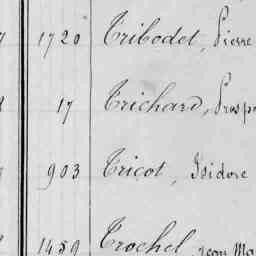 1720 Tribodet, Pierre
17 Trichard, Prosp
903 Tricot, Isidore
1459 Trochel, Jean Ma